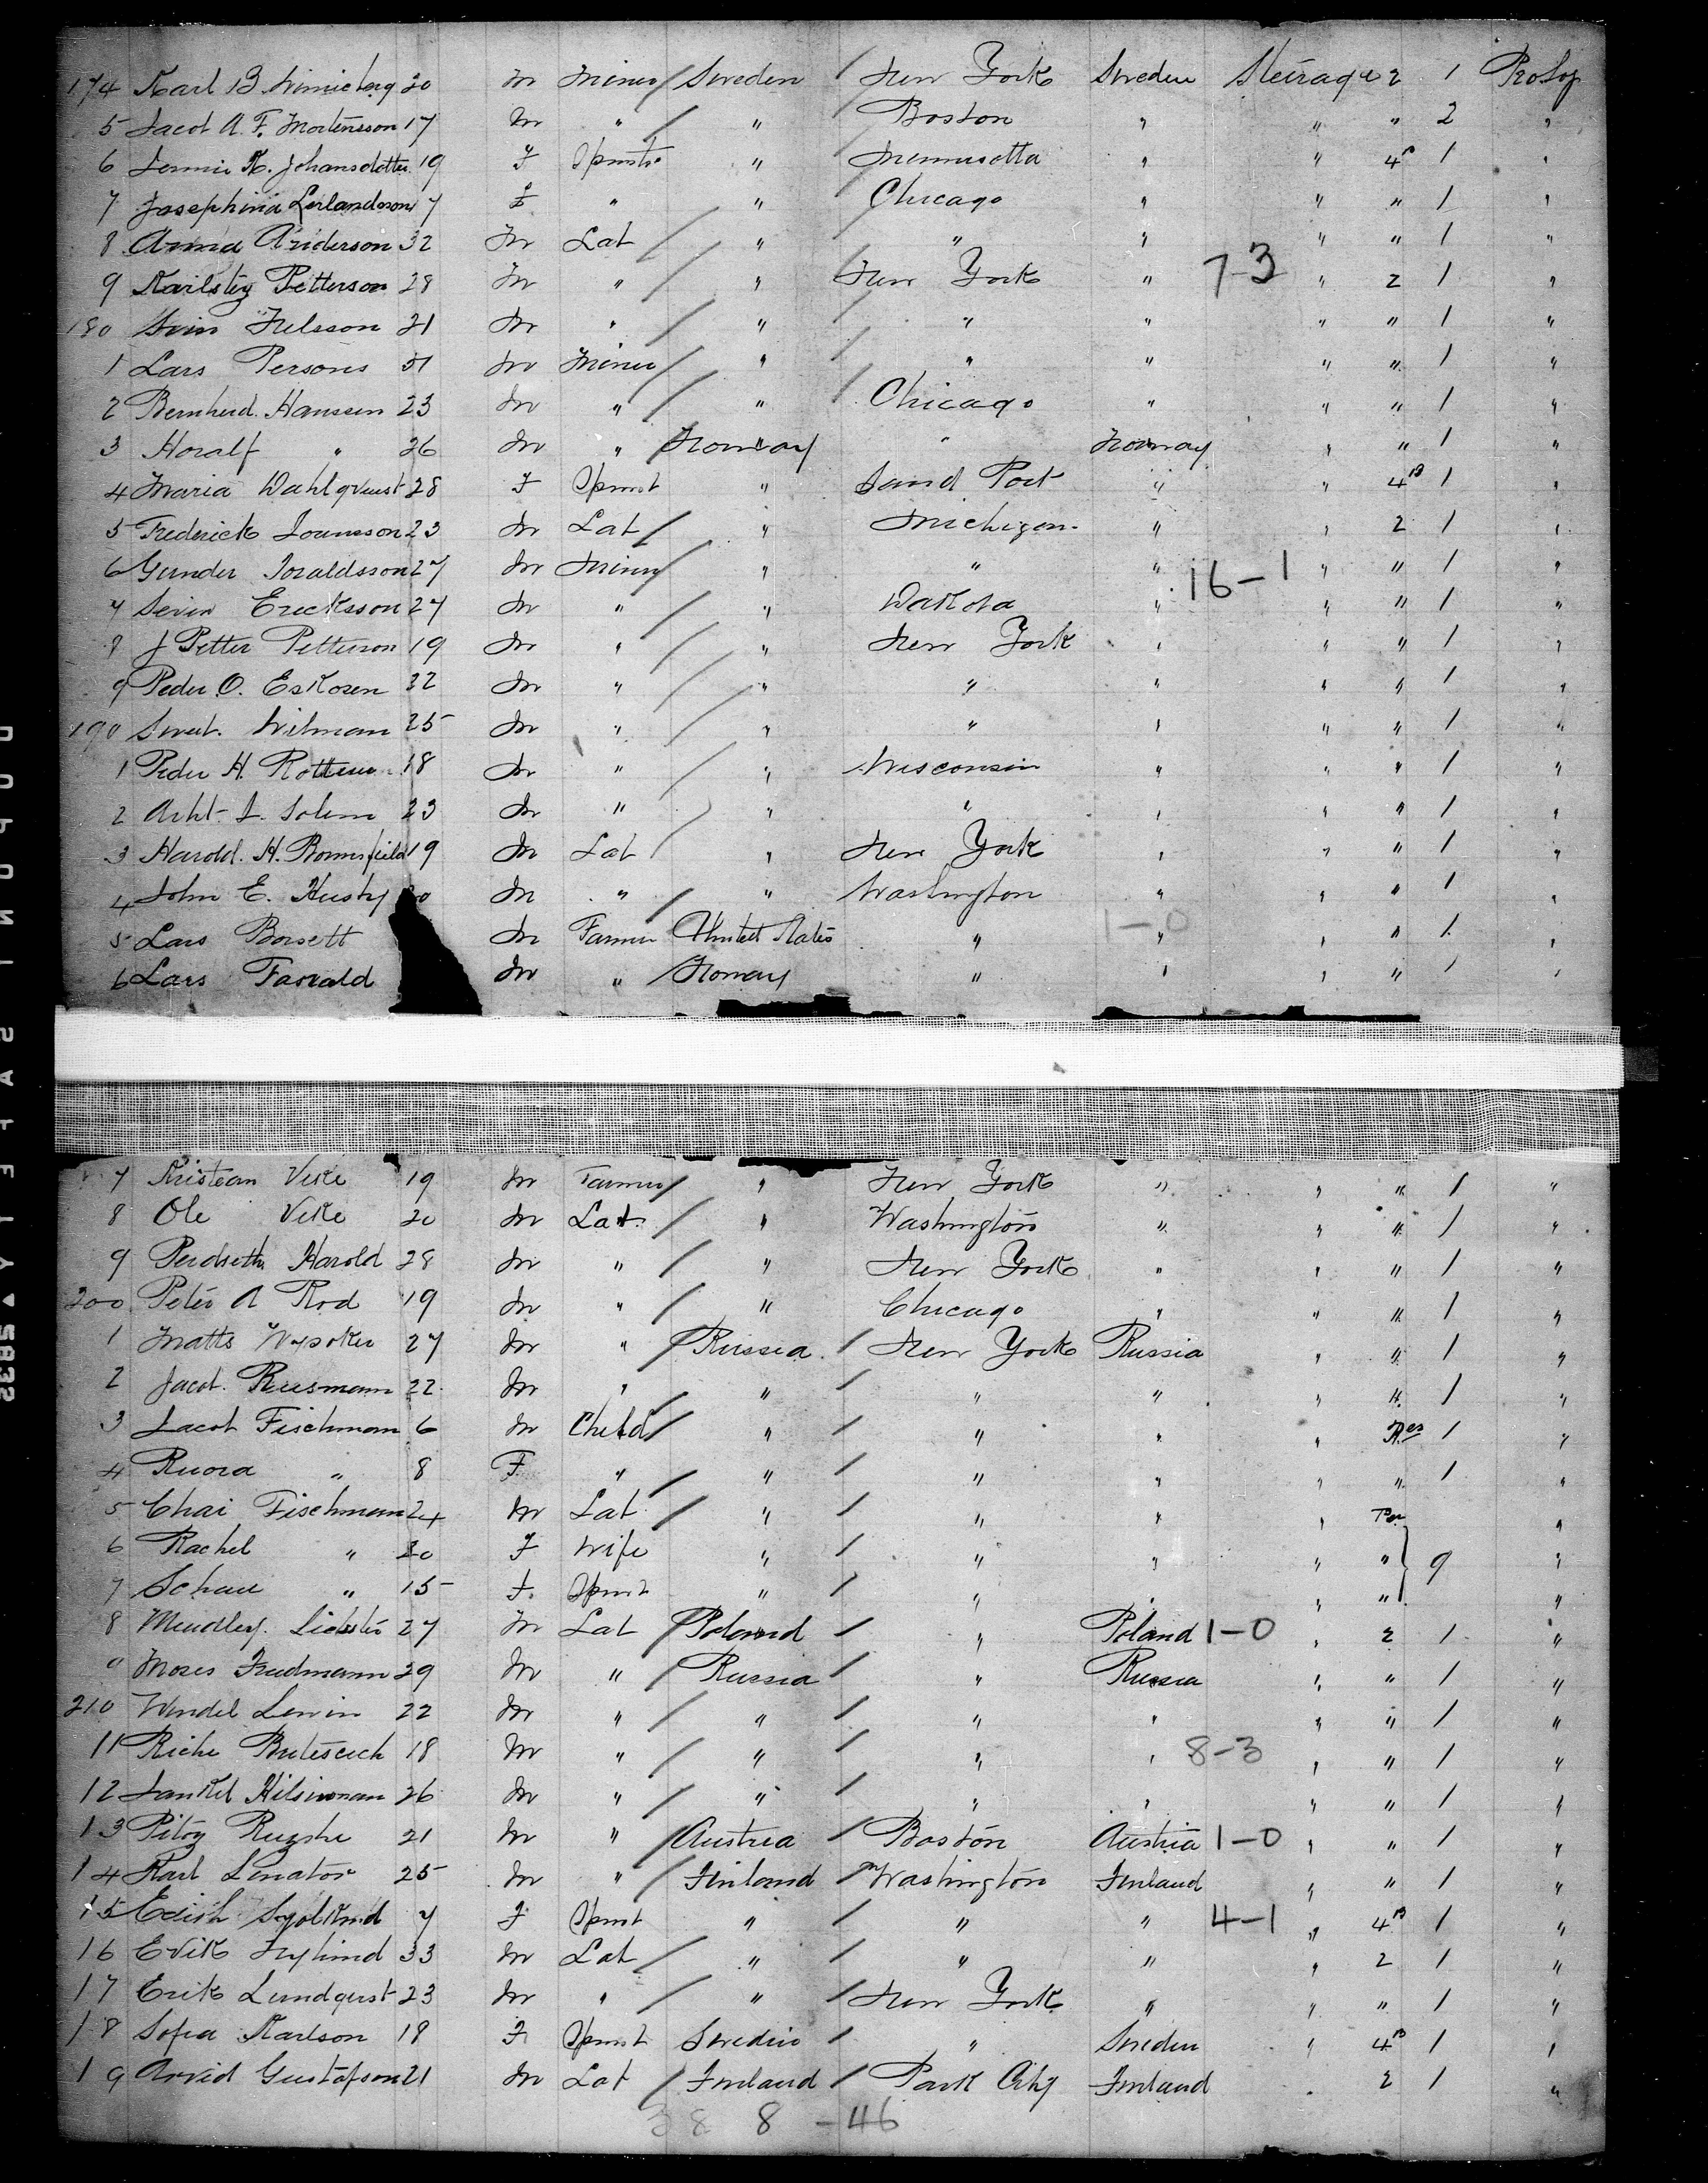 174 Karl B. 20 m Miner Sweden New York Sweden Steirage 2 1 Pro Soj
5 Jacob A. F. Mortensson 17 m " " Boston " " " 2 "
6 Jennie K. Johansdotter 19 F Spinstr " Minnusotta " " 4B 1 "
7 Josephina Lerlandsson 17 F " " Chicago " " " 1 "
8 Anna Anderson 32 m Lab " " " " " 1 "
9 Petterson 28 m " " New York " 7-3 " 2 1 "
180 Svin Nilsson 21 m " " " " " " 1 "
1 Lars Persons 51 m Miner " " " " " 1 "
2 Bernherd. Hanssen 23 m " " Chicago " " " 1 "
3 Horalf " 26 m " Norway " Norway " " 1 "
4 Maria Dahlqvuist 28 F Spinst " Sand Port " " 4B 1 "
5 Frederick Joansson 23 m Lab " Michigan " " 2 1 "
6 Gunder Toraldsson 27 m Miner " " " 16-1 " " 1 "
7 Sevin Ericksson 27 m " " Dakota " " " 1 "
8 J Petter Petterson 19 m " " New York " " " 1 "
9 Peder O. Eskosen 32 m " " " " " " 1 "
190 Wilman 25 m " " " " " " 1 "
1 Peder H. 18 m " " Wisconsin " " " 1 "
2 Solem 23 m " " " " " " 1 "
3 Harold. H. Bonnsfield 19 m Lab " New York " " " 1 "
4 John E. Husby m " " Washington " " " 1 "
5 Lars Borsett m Farmer United States " 1-0 " " " 1 "
6 Lars Farvald m " Norway " " " " 1 "
7 Kristean Vike 19 m Farmer " New York " " " 1 "
8 Ole Vike 20 m Lab " Washington " " " 1 "
9 Perdseth Harold 28 m " " New York " " " 1 "
200 Peter A Rod 19 m " " Chicago " " " 1 "
1 Matts Wypoker 27 m " Russia New York Russia " " 1 "
2 Jacob. Reismann 22 m " " " " " " 1 "
3 Jacob Fischman 6 m Child " " " " 1 "
4 Ruora " 8 F " " " " " " 1 "
5 Chai Fischman 24 m Lab " " " " "
6 Rachel " 20 F Wife " " " " " 9 "
7 Schau " 15 F. Spinst " " " " " "
8 Lichster 27 m Lab Poland " Poland 1-0 " 2 1 "
9 Moses Frudmann 29 m " Russia " Russia " " 1 "
210 Wendel Lewin 22 m " " " " " " 1 "
11 Riche Butescuch 18 m " " " " 8-3 " " 1 "
12 Jankel Hilsinman 26 m " " " " " " 1 "
13 Pitoz Ruzshe 21 m " Austria Boston Austria 1-0 " " 1 "
14 Karl Senator 25 m " Finland Washington Finland " " 1 "
15 7 F Spinst " " " 4-1 " 4B 1 "
16 Erik Nylund 33 m Lab " " " " 2 1 "
17 Erik Lundqust 23 m " " New York " " " 1 "
18 Sofia Karlson 18 F Spinst Sweden " Sweden " 4B 1 "
19 Arvid Gustafson 21 m Lab Finland Park City Finland 2 1 "
38 8 -46